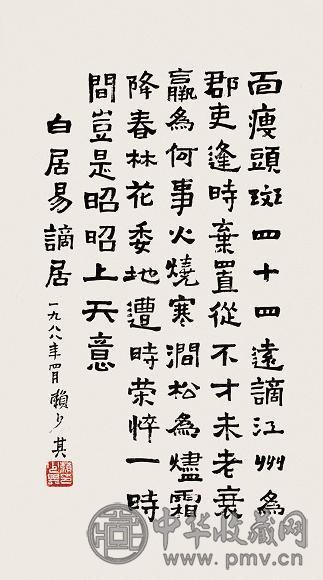 面瘦頭斑四十四遠謫江州為
郡吏逢時棄置從不才未老衰
羸為何事火燒寒澗松為燼霜
降春林花委地遭時荣悴一時
間豈是昭昭上天意
白居易謫居 一九八八年四月 賴少其
中华收藏网
www.pmv.cn